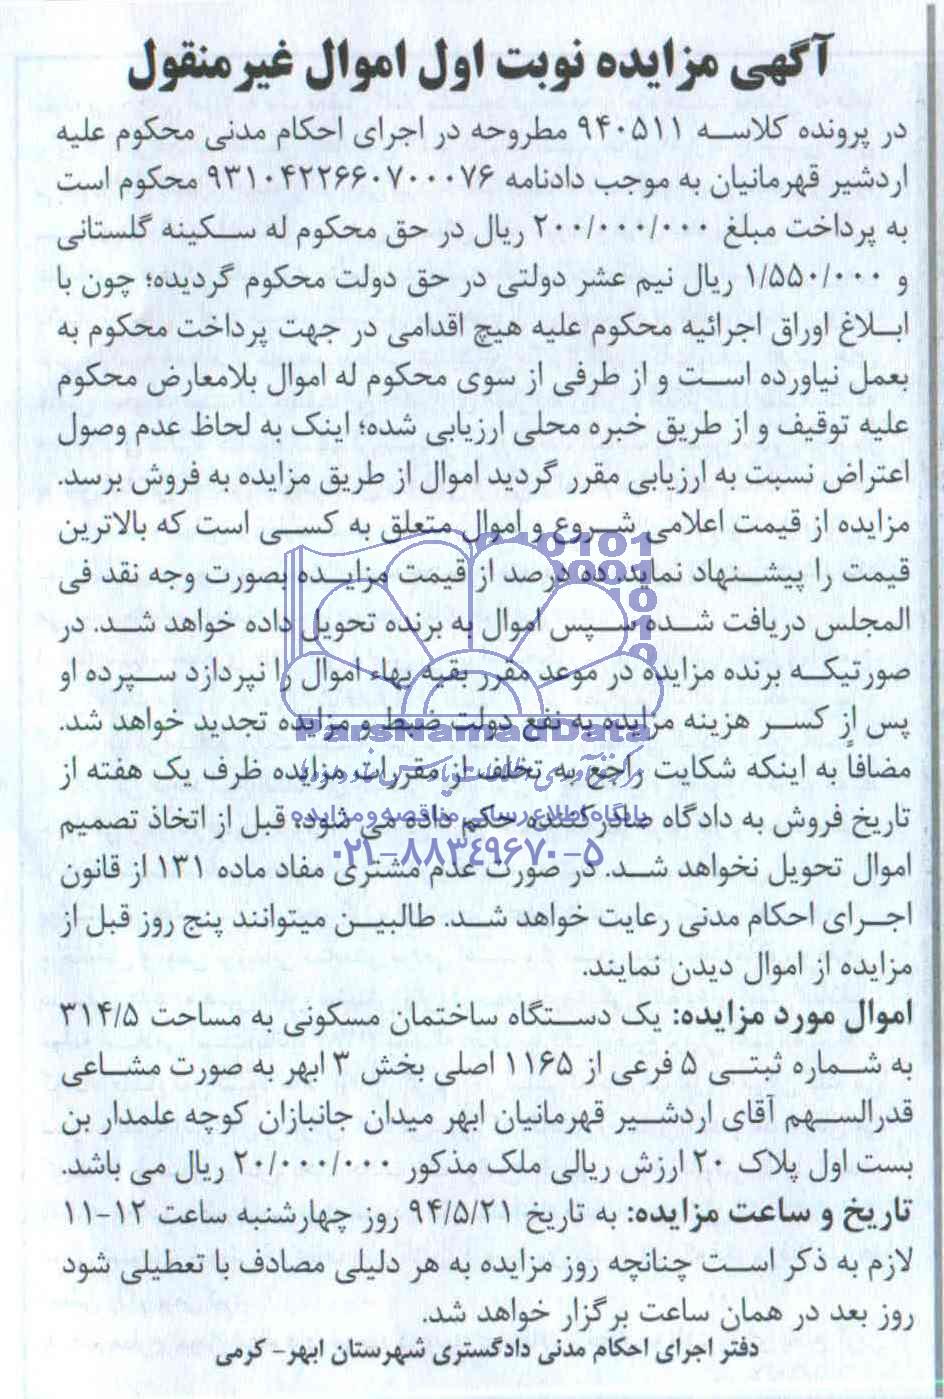 آگهی مزایده نوبت اول اموال غیرمنقول
در پرونده کلاسه ۹۴۰۵۱۱ مطروحه در اجرای احکام مدنی محکوم علیه
اردشیر قهرمانیان به موجب دادنامه ۹۳۱۰۴۲۲۶۶۰۷۰۰۰۷۶ محکوم است
به پرداخت مبلغ ۲۰۰/۰۰۰/۰۰۰ ریال در حق محکوم له سکینه گلستانی
و ۱/۵۵۰/۰۰۰ ریال نیم عشر دولتی در حق دولت محکوم گردیده؛ چون با
ابلاغ اوراق اجرائیه محکوم علیه هیچ اقدامی در جهت پرداخت محکوم به
بعمل نیاورده است و از طرفی از سوی محکوم له اموال بلامعارض محکوم
علیه توقیف و از طریق خبره محلی ارزیابی شده؛ اینک به لحاظ عدم وصول
اعتراض نسبت به ارزیابی مقرر گردید اموال از طریق مزایده به فروش برسد.
مزایده از قیمت اعلامی شروع و اموال متعلق به کسی است که بالاترین
قیمت را پیشنهاد نماید. ده درصد از قیمت مزایده بصورت وجه نقد فی
المجلس دریافت شده سپس اموال به برنده تحویل داده خواهد شد. در
صورتیکه برنده مزایده در موعد مقرر بقیه بهاء اموال را نپردازد سپرده او
پس از کسر هزینه مزایده به نفع دولت ضبط و مزایده تجدید خواهد شد.
ParsNamadData
مضافاً به اینکه شکایت راجع به تخلف از مقررات مزایده ظرف یک هفته از
تاریخ فروش به دادگاه صادرکننده حکم داده می شود، قبل از اتخاذ تصمیم
پایگاه اطلاع رسانی مناقصه و مزایده
۰۲۱-۸۸۳۴۹۶۷۰-۵
اموال تحویل نخواهد شد. در صورت عدم مشتری مفاد ماده ۱۳۱ از قانون
اجرای احکام مدنی رعایت خواهد شد. طالبین میتوانند پنج روز قبل از
مزایده از اموال دیدن نمایند.
اموال مورد مزایده: یک دستگاه ساختمان مسکونی به مساحت ۳۱۴/۵
به شماره ثبتی ۵ فرعی از ۱۱۶۵ اصلی بخش ۳ ابهر به صورت مشاعی
قدرالسهم آقای اردشیر قهرمانیان ابهر میدان جانبازان کوچه علمدار بن
بست اول پلاک ۲۰ ارزش ریالی ملک مذکور ۲۰/۰۰۰/۰۰۰ ریال می باشد.
تاریخ و ساعت مزایده: به تاریخ ۹۴/۵/۲۱ روز چهارشنبه ساعت ۱۲-۱۱
لازم به ذکر است چنانچه روز مزایده به هر دلیلی مصادف با تعطیلی شود
روز بعد در همان ساعت برگزار خواهد شد.
دفتر اجرای احکام مدنی دادگستری شهرستان ابهر- کرمی